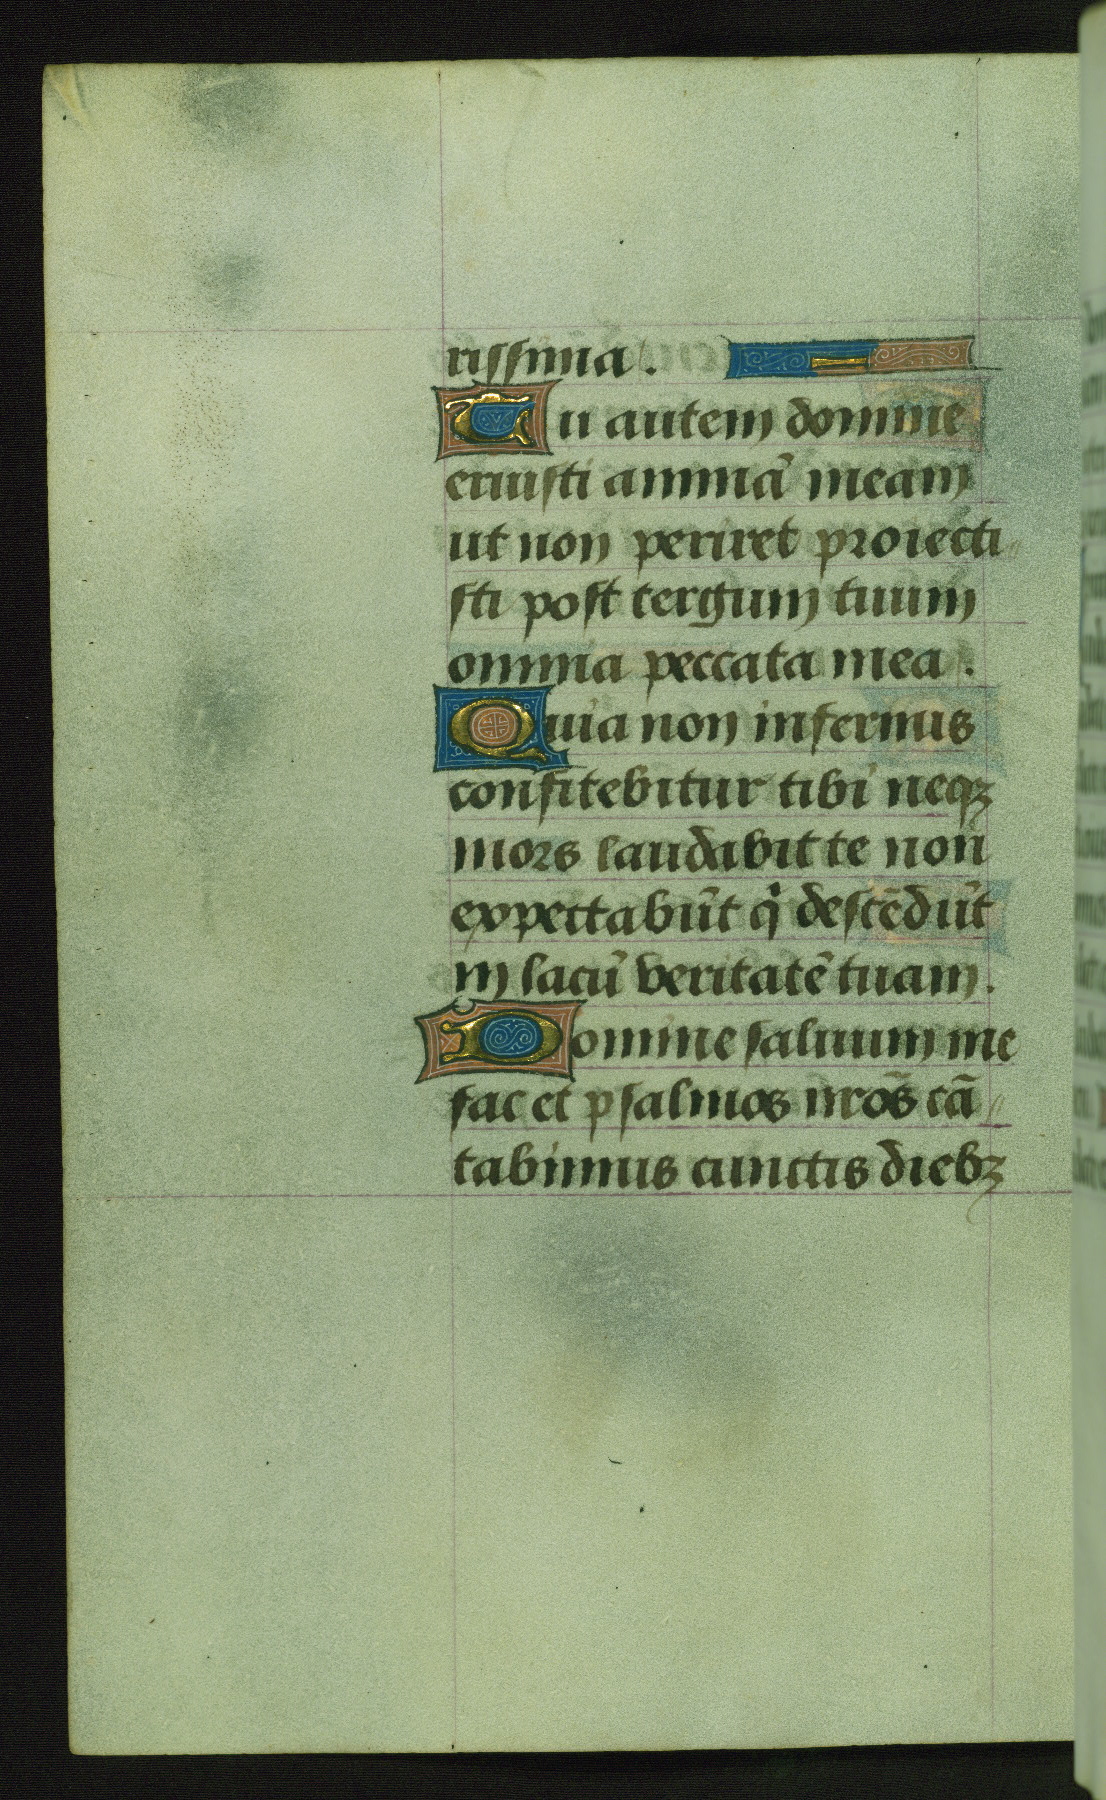 rissima.
Tu autem domine
eruisti animã meam
ut non periret proiecti
sti post tergum tuum
omnia peccata mea.
Quia non infernus
confitebitur tibi neqꝫ
mors laudabit te non
expectabũt qͥ descẽdũt
in lacũ veritatẽ tuam.
Domine saluum me
fac et psalmos nr̃os cã
tabimus cunctis diebꝫ